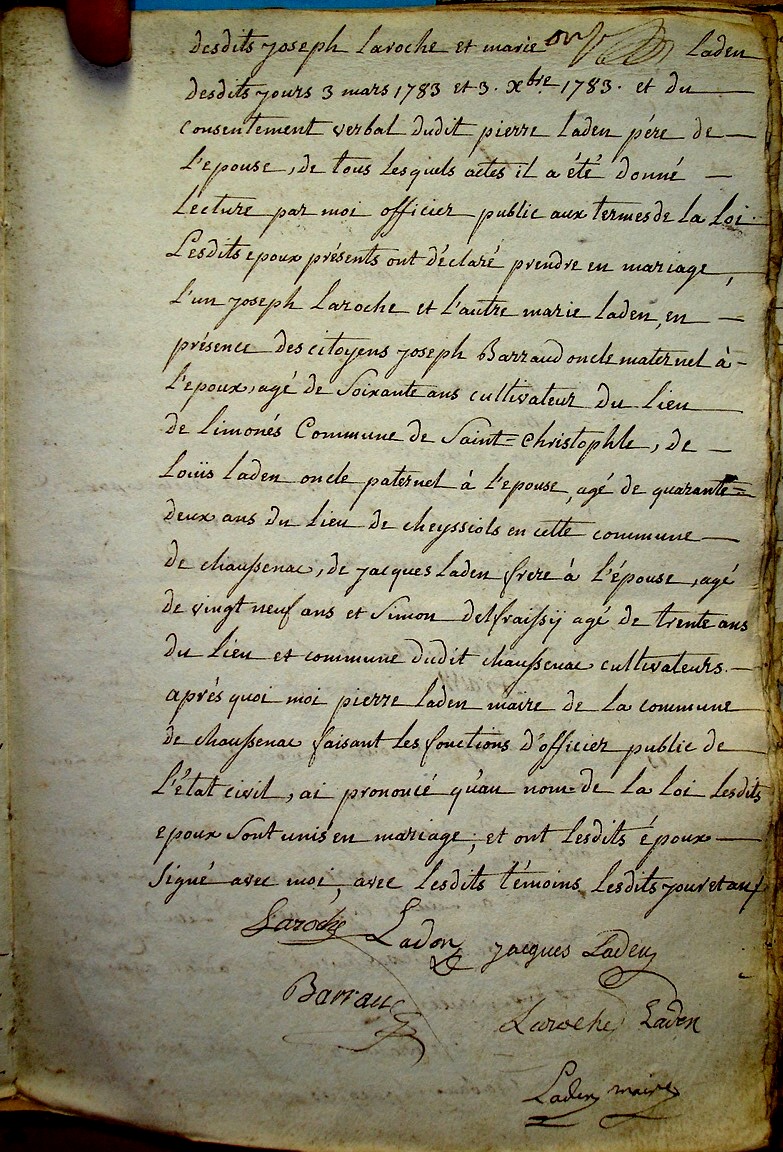 desdits joseph Laroche et marie Laden
desdits jours 3 mars 1783 et 3. xbre 1783. et du
consentement verbal dudit pierre laden pére de
l'epouse, de tous lesquels actes il a été donné
lecture par moi officier public aux termes de la loi.
Lesdits epoux présents ont déclaré prendre en mariage,
l'un joseph Laroche et l'autre marie laden, en
présence des citoyens joseph Barraud oncle maternel à
l'epoux, agé de soixante ans cultivateur du lieu
de limonés Commune de Saint=christophle, de
Loüis laden oncle paternel à l'epouse, agé de quarante=
deux ans du lieu de cheyssiols en cette commune
de chaussenac, de jacques laden frere à l'épouse, agé
de vingt neuf ans et Simon delfraissÿ agé de trente ans
du lieu et commune dudit chaussenac cultivateurs.
aprés quoi moi pierre laden maire de la commune
de chaussenac faisant les fonctions d'officier public de
l'état civil, ai prononcé qu'au nom de la loi lesdits
epoux sont unis en mariage, et ont lesdits époux
signé avec moi, avec lesdits témoins, lesdits jour et an
Laroche Laden jacques Laden
Barraud
Laroche Laden
Laden maire